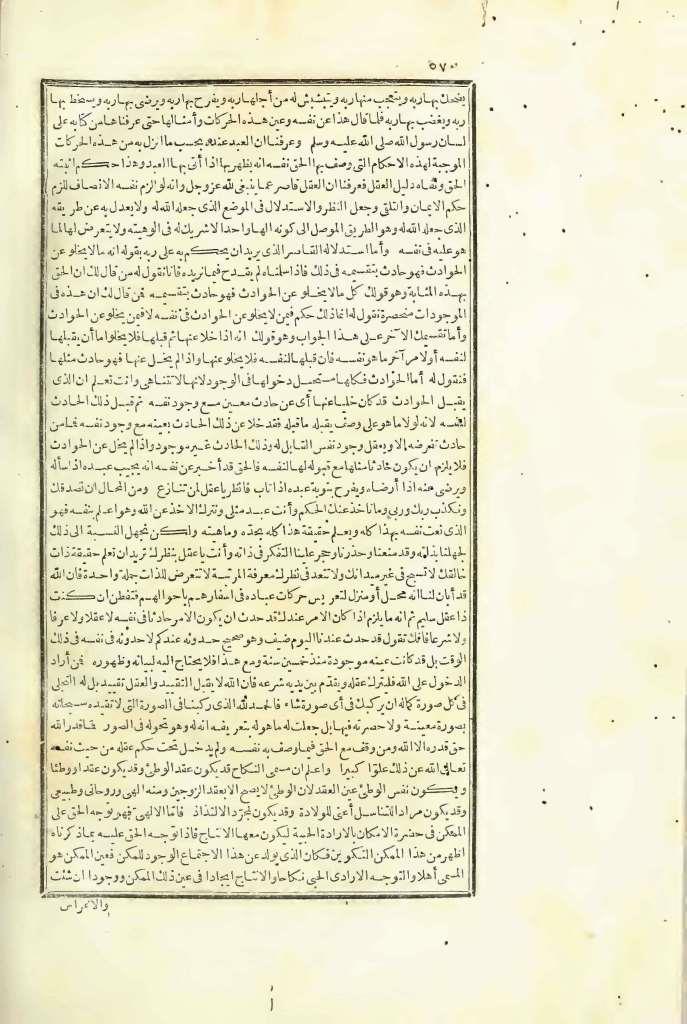 ٥٧٠
يضحك بها ربه ويتعجب منها ربه ويتبشبش له من أجلها ربه ويفرح بها ربه ويرضى بها ربه ويسخط بها
ربه ويغضب بها ربه فلما قال هذا عن نفسه وعين هذه الحركات وأمثالها حتى عرفناها من كتابه على
لسان رسول الله صلى الله عليه وسلم وعرفنا ان العبد عنده بحسب ما انزل به من هذه الحركات
الموجبة لهذه الاحكام التى وصف بها الحق نفسه انه يظهر بها اذا أتى بها العبد وهذا حكم اثبته
الحق ونفاه دليل العقل فعرفنا ان العقل قاصر عما ينبغى لله عز وجل وانه لو الزم نفسه الانصاف للزم
حكم الايمان والتلقى وجعل النظر والاستدلال فى الموضع الذى جعله الله له ولا يعدل به عن طريقه
الذى جعله الله له وهو الطريق الموصل الى كونه الها واحدا لا شريك له فى الوهيته ولا يتعرض لها لما
هو عليه فى نفسه وأما استدلاله القاصر الذى يريد ان يحكم به على ربه بقوله انه ما لا يخلو عن
الحوادث فهو حادث بتقسيمه فى ذلك فاذا سلمناه لم يقدح فيما نريده فانا نقول له من قال لك ان الحق
بهذه المثابة وهو قولك كل ما لا يخلو عن الحوادث فهو حادث بتقسيمه فمن قال لك ان هذه فى
الموجودات منحصرة نقول له انما ذلك حكم فيمن لا يخلو عن الحوادث فى نفسه لا فيمن يخلو عن الحوادث
وأما تقسيمك الآخر على هذا الجواب وهو قولك انه اذا خلا عنها ثم قبلها فلا يخلو اما أن يقبلها
لنفسه أو لامر آخر ما هو نفسه فان قبلها لنفسه فلا يخلو عنها واذا لم يخل عنها فهو حادث مثلها
فنقول له أما الحوادث فكلها مستحيل دخولها فى الوجود لانها لا تتناهى وانت تعلم ان الذى
يقبل الحوادث قد كان خليا عنها أى عن حادث معين مع وجود نفسه ثم قبل ذلك الحادث
لنفسه لانه لولا ما هو على وصف يقبله ما قبله فقد خلا عن ذلك الحادث بعينه مع وجود نفسه فما من
حادث تفرضه الا ويعقل وجود نفس القابل له وذلك الحادث غير موجود واذا لم يخل عن الحوادث
فلا يلزم ان يكون حادثا مثلها مع قبوله لها لنفسه فالحق قد أخبر عن نفسه انه يجيب عبده اذا سأله
ويرضى عنه اذا أرضاه ويفرح بتوبة عبده اذا تاب فانظر يا عقل لمن تنازع ومن المحال ان نصدقك
ونكذب ربك وربى وما نأخذ عنك الحكم وأنت عبد مثلى ونترك الاخذ عن الله وهو اعلم بنفسه فهو
الذى نعت نفسه بهذا كله ويعلم حقيقة هذا كله بحده وماهيته ولكن نجهل النسبة الى ذلك
لجهلنا بذاته وقد منعنا وحذرنا وحجر علينا التفكر فى ذاته وأنت يا عقل بنظرك تريد ان تعلم حقيقة ذات
خالقك لا تسبح فى غير ميدانك ولا تتعد فى نظرك معرفة المرتبة لا تتعرض للذات جملة واحدة فان الله
قد أبان لنا انه محل أو منزل لتعريس حركات عباده فى اسفارهم باحوالهم فتفطن ان كنت
ذا عقل سليم ثم انه ما يلزم اذا كان الامر عندك قد حدث ان يكون الامر حادثا فى نفسه لا عقلا ولا عرفا
ولا شرعا فانك تقول قد حدث عندنا اليوم ضيف وهو صحيح حدوثه عندكم لا حدوثه فى نفسه فى ذلك
الوقت بل قد كانت عينه موجودة منذ خمسين سنة ومع هذا فلا يحتاج اليه لبيانه وظهوره فمن أراد
الدخول على الله فليترك عقله ويقدم بين يديه شرعه فان الله لا يقبل التقييد والعقل تقييد بل له التجلى
فى كل صورة كما له ان يركبك فى أى صورة شاء فالحمد لله الذى ركبنا فى الصورة التى لا تقيده سبحانه
بصورة معينة ولا حصرته فيها بل جعلت له ما هو له بتعريفه انه له وهو تحوله فى الصور فما قدر الله
حق قدره الا الله ومن وقف مع الحق فيما وصف به نفسه ولم يدخل تحت حكم عقله من حيث نفسه
تعالى الله عن ذلك علوا كبيرا واعلم ان مسمى النكاح قد يكون عقد الوطئ وقد يكون عقدا ووطئا
ويكون نفس الوطئ عين العقد لان الوطئ لا يصح الا بعقد الزوجين ومنه الهى وروحانى وطبيعى
وقد يكون مرادا للتناسل أعنى للولادة وقد يكون لمجرد الالتذاذ فاما الالهى فهو توجه الحق على
الممكن فى حضرة الامكان بالارادة الحبية ليكون معها الانتاج فاذا توجه الحق عليه بما ذكرناه
اظهر من هذا الممكن التكوين فكان الذى يولد عن هذا الاجتماع الوجود للممكن فعين الممكن هو
المسمى أهلا والتوجه الارادى الحبى نكاحا والانتاج ايجادا فى عين ذلك الممكن ووجودا ان شئت
والاعراس